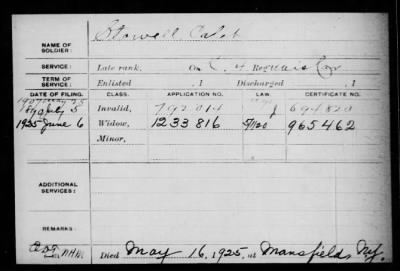 NAME OF SOLDIER: Stowell Caleb
SERVICE: Late rank, Co. C, 4 Regulars Cav
TERM OF SERVICE: Enlisted , 1 Discharged , 1
DATE OF FILING. CLASS. APPLICATION NO. LAW. CERTIFICATE NO.
Invalid, 792,014 694,820
1925 June 6 Widow, 1233 816 965462
Minor,
ADDITIONAL SERVICES:
REMARKS:
Died May 16, 1925, at Mansfield,